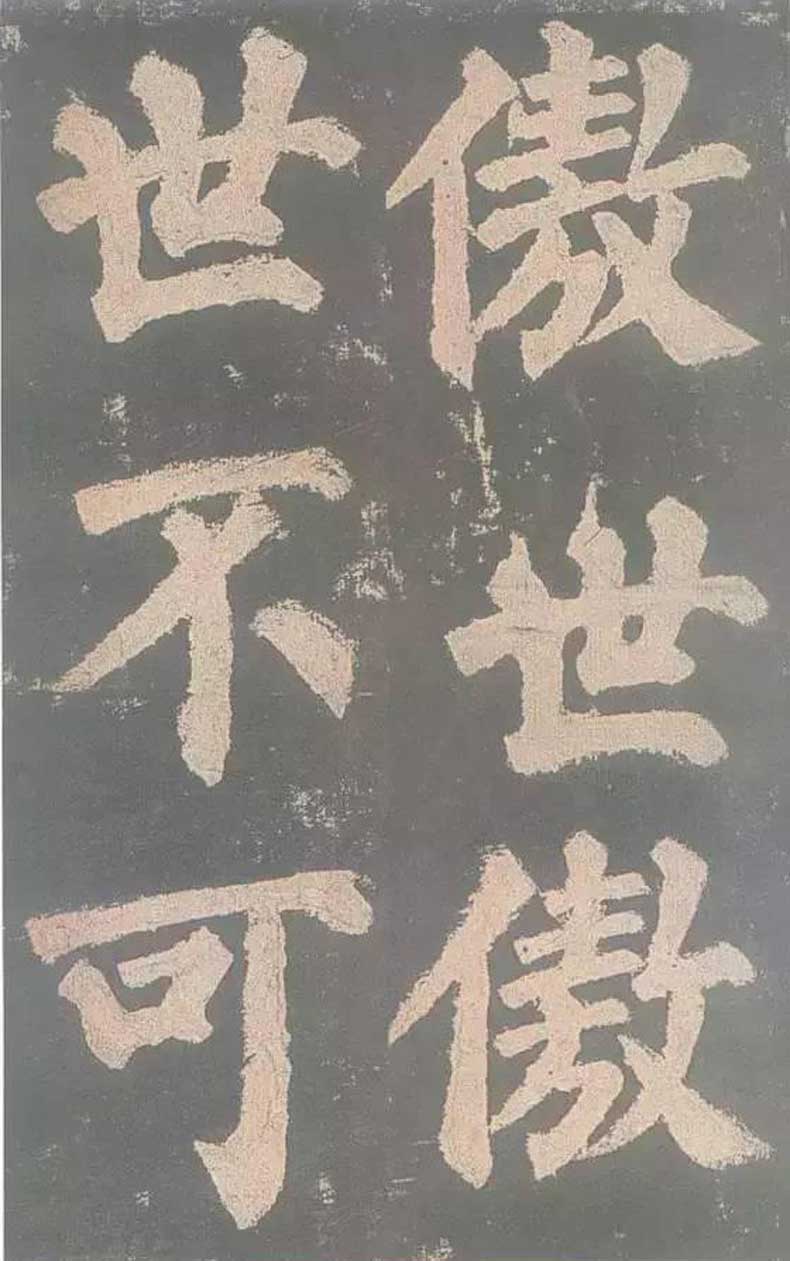 傲世傲
世不可